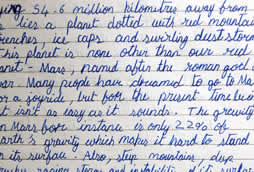 54.6 million kilometres away from
lies a plant dotted with red mountain
ice caps and swirling dust storm
This planet is none other than our red
- Mars, named after the roman god of
war. Many people have dreamed to go to Ma
for a joyride, but for the present time
it isn't as easy as it sounds. The gravity
on Mars for instance is only 2.2% of
Earth's gravity which makes it hard to stand
on its surface. Also, steep mountains, deep
storms and instability of its surface